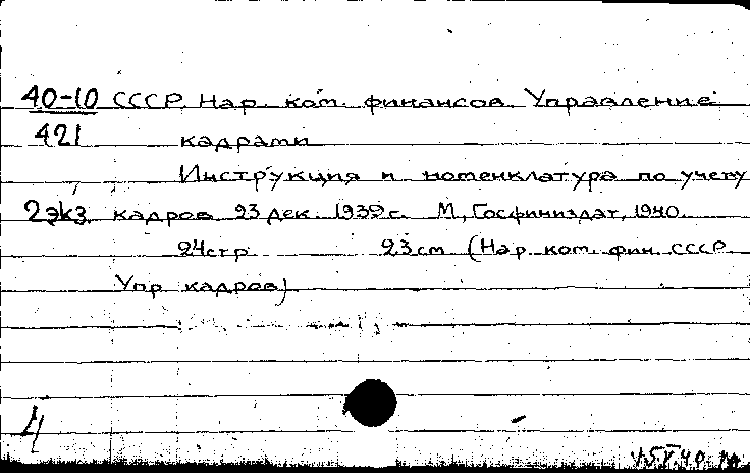 40-10 СССР. Нар. ком. финансов. Управление
421 кадрами
Инструкция и номенклатура по учету
2экз. кадров. 23 дек. 1939 г. М., Госфиниздат, 1940.
24 стр. 23 см (Нар. ком. фин. СССР.
Упр. кадров)
4